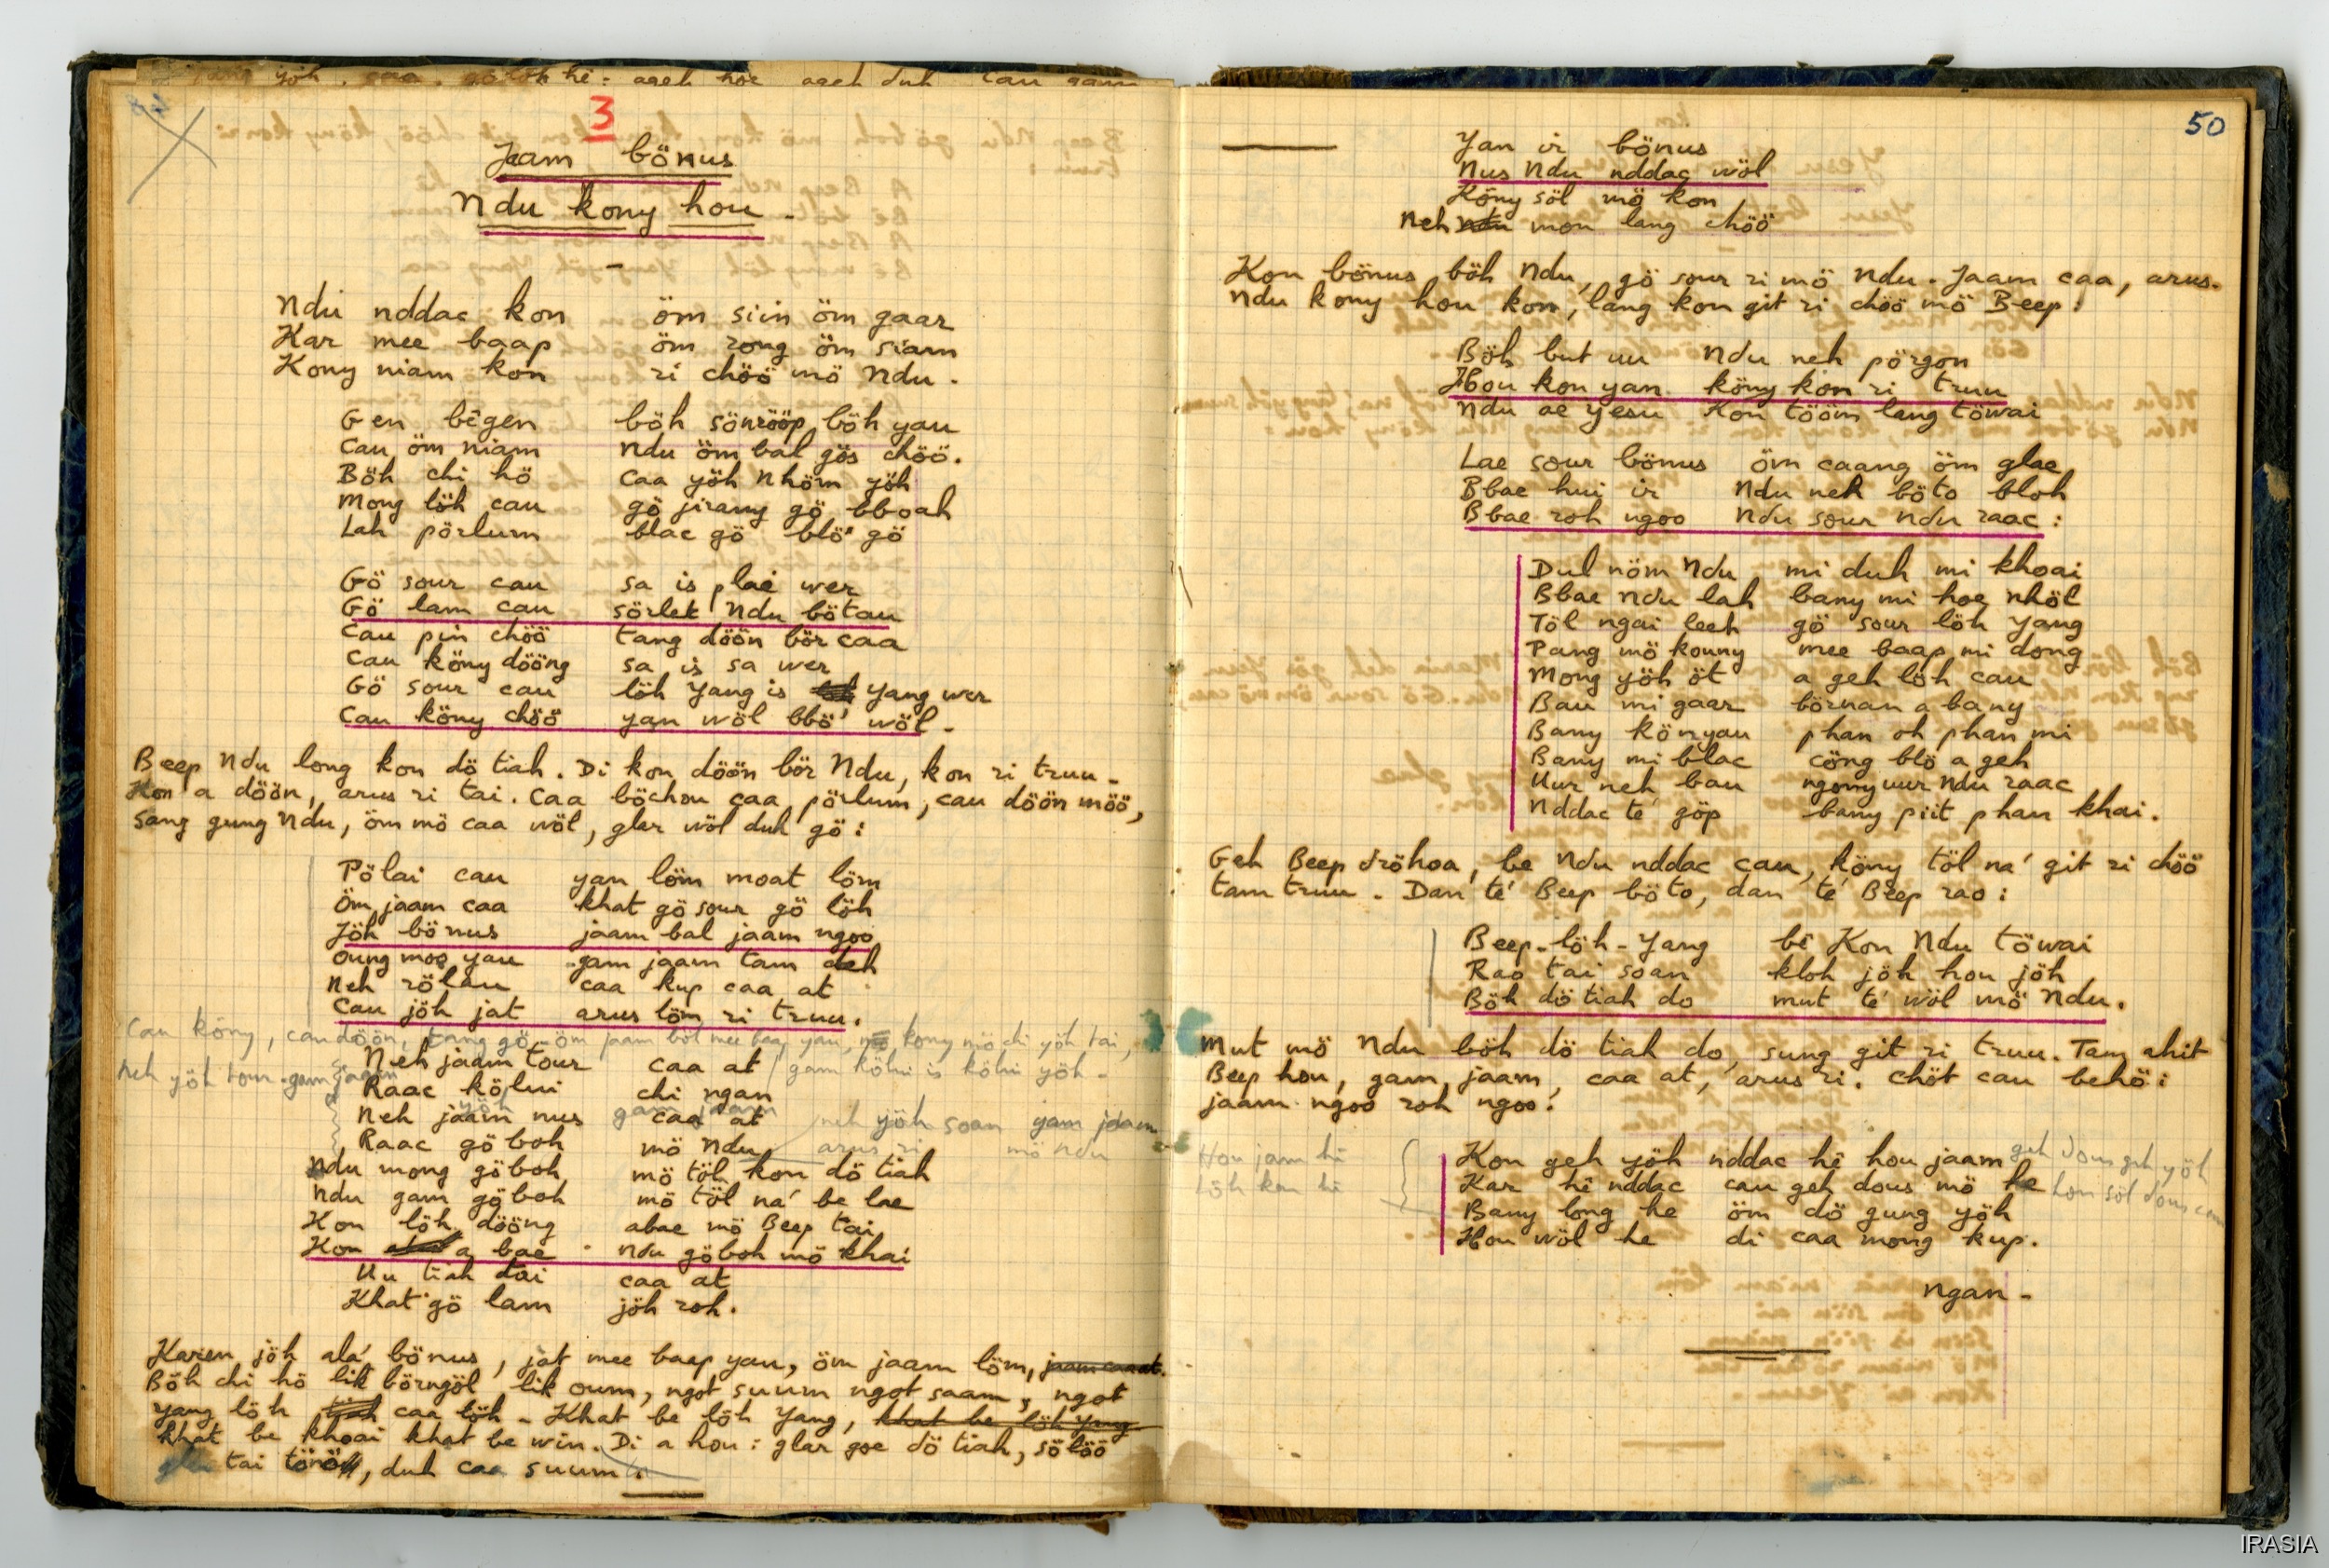 3
Jaam bönus
Ndu kony hou -
Ndu nddac kon öm siin öm gaar
Kar mee baap öm rong öm siam
Kony niam kon ri chöö mö Ndu.
Gen bêgen böh sönrööp böh yau
Cau öm niam Ndu öm bal gös chöö.
Böh chi hö caa yöh nhöm yöh
Mong löh cau gö jirang gö bboah
Lah pörlum blac gö blö gö
Gö sour cau sa is plai wer
Gö lam cau sörlet Ndu bötau
Cau pin chöö tang döön bör caa
Cau köny dööng sa is sa wer
Gö sour cau löh Yang is Yang wer
Cau köny chöö yan wöl bbö' wöl -
Beep Ndu long kon dö tiah. Di kon döön bör Ndu, kon ri truu -
Kon a döön, arus ri tai. Caa böchou caa pörlum, cau döön möö,
sang gung Ndu, öm mö caa wöl, glar wöl duh gö:
Pölai cau yan löm moat löm
Öm jaam caa khat gö sour gö löh
Jöh bönus jaam bal jaam ngoo
oung mos yau gam jaam tam deh
Neh rölau caa kup caa at
Cau jöh jat arus löm ri truu.
Can köny, can döön, tang gö öm jaam böl mee baap yau, kony mö chi yöh tai,
Neh jaam tour caa at gam köhui is köhui yöh -
neh yöh tour gam jaam
Raac kölui chi ngan
Neh jaam nus caa at neh yöh soan gam jaam
Raac gö boh mö Ndu arus ri mö ndu
Ndu mong gö boh mö töh kon dö tiah
Ndu gam gö boh mö töl na' be lae
Kon löh dööng abae mö Beep tai
Kon a bae Ndu gö boh mö khai
Uu tiah tai caa at
Khat gö lam jöh roh.
Karen jöh ala' bönus, jat mee baap yau, öm jaam löm, jaam caa at.
Böh chi hö lik börngöl lik oum, ngot suum ngot saam, ngot
yang löh caa löh - Khat be löh Yang, khat be löh Yang
khat be khoai khat be win. Di a hou: glar goe dö tiah, sö löö
tai, duh caa suum.
50
kon
Yan ir bönus
Nus Ndu nddac wöl
Köny söl mö kon
Neh mon lang chöö
Kon bönus böh Ndu, gö sour ri mö Ndu. Jaam caa, arus.
Ndu kony hou kon, lang kon git ri chöö mö Beep:
Böh but uu Ndu neh pörgon
Hou kon yan köny kon ri truu
Ndu ae Yesu Kon tööm lang töwai
Lae sour bönus öm caang öm glae
Bbae hui ir Ndu neh böto bloh
Bbae roh ngoo Ndu sour Ndu raac:
Dul nöm Ndu mi duh mi khoai
Bbae Ndu lah bany mi hoe nhöl
Töl ngai leeh gö sour löh Yang
Pang mö kouny mee baap mi dong
Mong yöh öt a geh löh cau
Bau mi gaar börnan a bany
Bany könyau phan oh phan mi
Bany mi blac cöng blö a geh
Uur neh bau ngony uur Ndu raac
Nddac te' göp bany piit phan khai.
Geh Beep dröhoa, be Ndu nddac cau, köny töl na' git ri chöö
tam truu. Dan te' Beep böto, dan te' Beep rao:
Beep-löh-Yang bê Kon Ndu töwai
Rao tai soan kloh jöh hou jöh
Böh dö tiah do mut te' wöl mö Ndu.
Mut mö Ndu böh dö tiah do, sung git ri truu. Tam ahit
Beep hou, gam jaam, caa at, arus ri. Chöt cau behö:
jaam ngoo roh ngoo:
Kon geh yöh nddac hê hou jaam geh dous geh yöh
Kar hê nddac cau geh dous mö he hou söl dous cau
Bany long he öm dö gung yöh
Hou wöl he di caa mong kup.
Hou jam hê
löh kon hê
ngan -
IRASIA